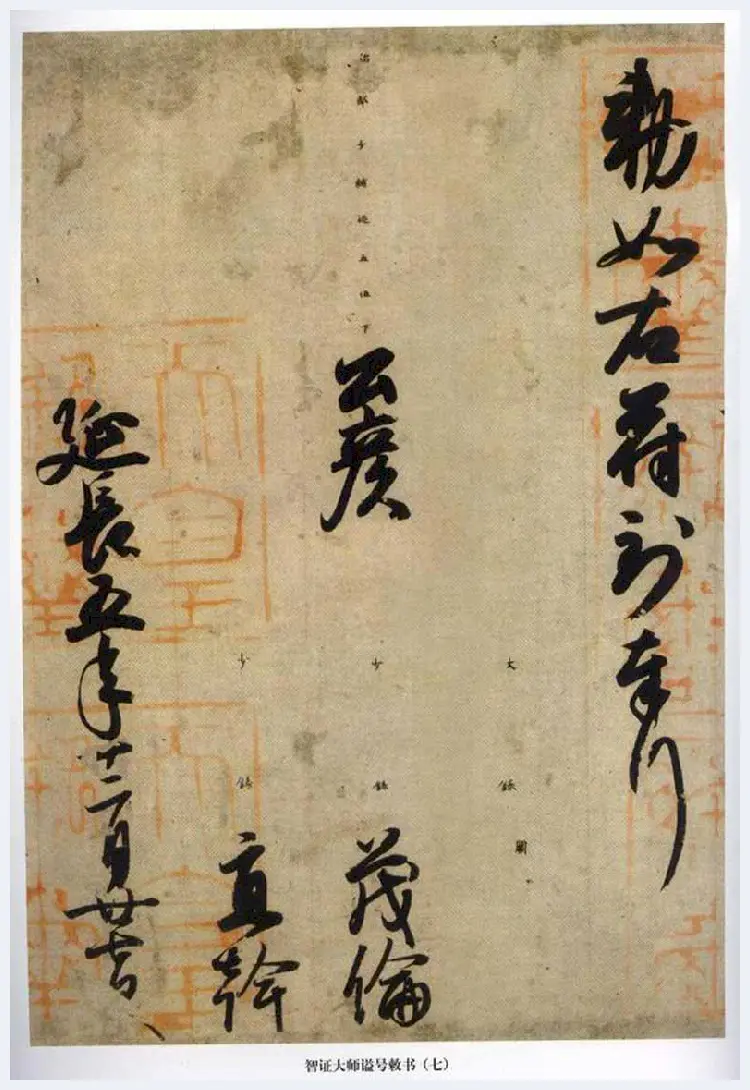 勅如右符到奉行
大録闕
治部少輔從五位下公廣
少録茂倫
少録直幹
延長五年十二月廿七日
智证大师谥号敕书（七）